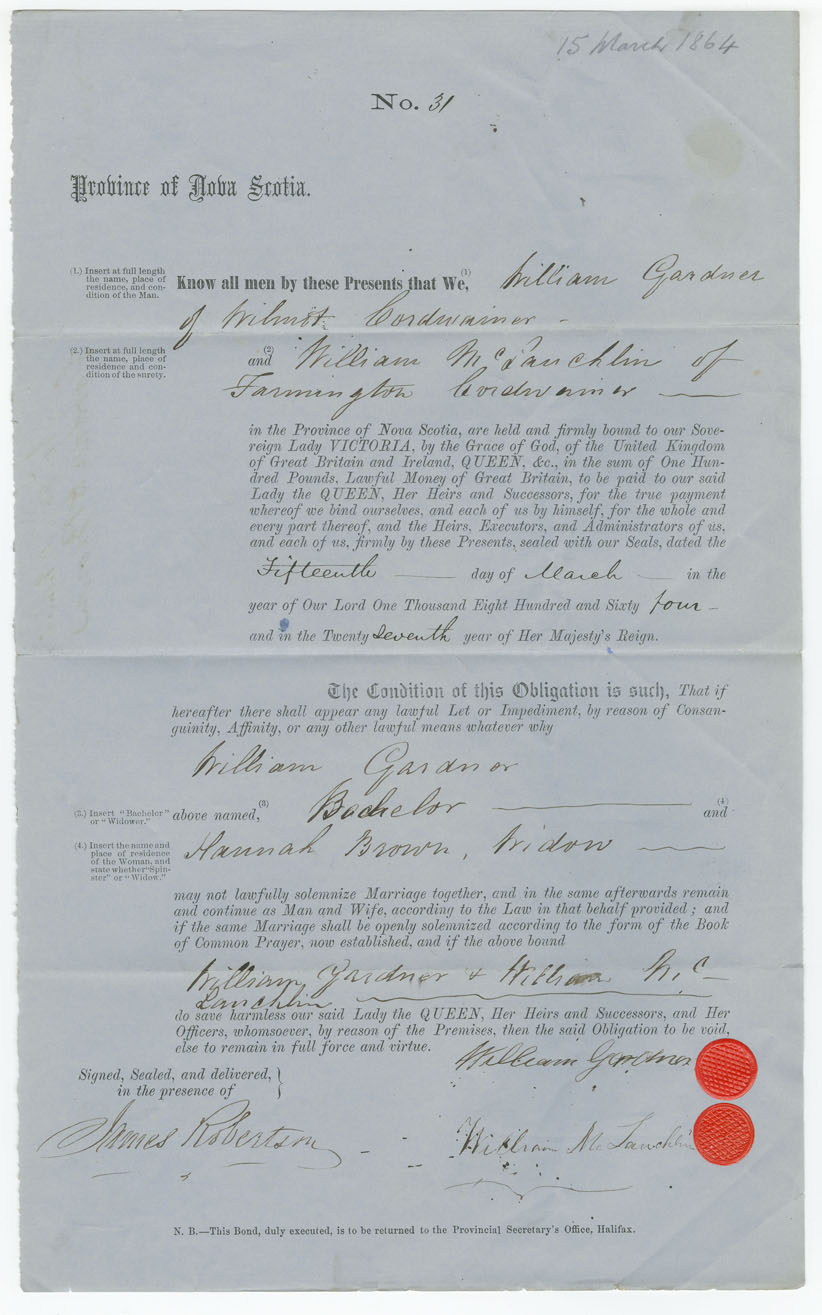 15 March 1864
No. 31
Province of Nova Scotia.
(1.) Insert at full length
the name, place of
residence, and con-
dition of the Man.
Know all men by these Presents that We,(1) William Gardner
of Wilmot Cordwainer -
(2.) Insert at full length
the name, place of
residence and con-
dition of the surety.
and(2) William McLauchlin of
Farmington Cordwainer —
in the Province of Nova Scotia, are held and firmly bound to our Sove-
reign Lady VICTORIA, by the Grace of God, of the United Kingdom
of Great Britain and Ireland, QUEEN, &c., in the sum of One Hun-
dred Pounds, Lawful Money of Great Britain, to be paid to our said
Lady the QUEEN, Her Heirs and Successors, for the true payment
whereof we bind ourselves, and each of us by himself, for the whole and
every part thereof, and the Heirs, Executors, and Administrators of us,
and each of us, firmly by these Presents, sealed with our Seals, dated the
Fifteenth — day of March — in the
year of Our Lord One Thousand Eight Hundred and Sixty four -
and in the Twenty Seventh year of Her Majesty's Reign.
The Condition of this Obligation is such, That if
hereafter there shall appear any lawful Let or Impediment, by reason of Consan-
guinity, Affinity, or any other lawful means whatever why
William Gardner
(3.) Insert "Bachelor"
or "Widower."
above named,(3) Bachelor — and(4)
(4.) Insert the name and
place of residence
of the Woman, and
state whether "Spin-
ster" or "Widow."
Hannah Brown, Widow —
may not lawfully solemnize Marriage together, and in the same afterwards remain
and continue as Man and Wife, according to the Law in that behalf provided; and
if the same Marriage shall be openly solemnized according to the form of the Book
of Common Prayer, now established, and if the above bound
William Gardner + William Mc-
Lauchlin
do save harmless our said Lady the QUEEN, Her Heirs and Successors, and Her
Officers, whomsoever, by reason of the Premises, then the said Obligation to be void,
else to remain in full force and virtue.
William Gardner
Signed, Sealed, and delivered,
in the presence of
James Robertson
William McLauchlin
N. B.—This Bond, duly executed, is to be returned to the Provincial Secretary's Office, Halifax.